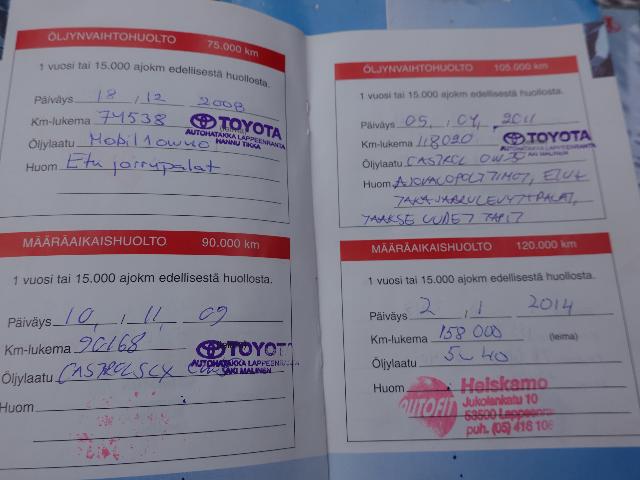 ÖLJYNVAIHTOHUOLTO 75.000 km
1 vuosi tai 15.000 ajokm edellisestä huollosta.
Päiväys 18, 12 2008
Km-lukema 74538
TOYOTA
AUTOHATAKKA LAPPEENRANTA
HANNU TIKKA
Öljylaatu Mobil 1 0w40
Huom Etu jarrupalat
MÄÄRÄAIKAISHUOLTO 90.000 km
1 vuosi tai 15.000 ajokm edellisestä huollosta.
Päiväys 10, 11 09
Km-lukema 90168
TOYOTA
AUTOHATAKKA LAPPEENRANTA
JAKI MALINEN
Öljylaatu CASTROL SLX
Huom
ÖLJYNVAIHTOHUOLTO 105.000 km
1 vuosi tai 15.000 ajokm edellisestä huollosta.
Päiväys 05, 04, 2011
Km-lukema 118020
TOYOTA
AUTOHATAKKA LAPPEENRANTA
JAKI MALINEN
Öljylaatu CASTROL 0W30
Huom AJOVALOPOLTTIMOT, ETU &
TAKAJARRULEVYT & PALAT,
TAAKSE UUDET TAPIT
MÄÄRÄAIKAISHUOLTO 120.000 km
1 vuosi tai 15.000 ajokm edellisestä huollosta.
Päiväys 2, 1 2014
Km-lukema 158 000 (leima)
Öljylaatu 5w40
Huom
AUTOFIT
Helskamo
Jukolankatu 10
53500 Lappeenra
puh. (05) 416 106